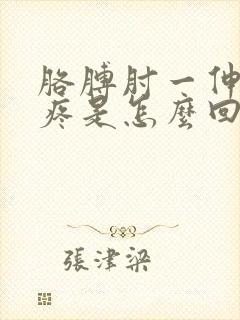 胳膊肘一伸
疼是怎麼回
張津梁